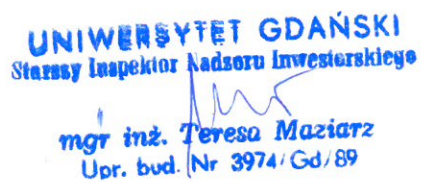 UNIWERSYTET GDAŃSKI
Starszy Inspektor Nadzoru Inwestorskiego
mgr inż. Teresa Maziarz
Upr. bud. Nr 3974/Gd/89